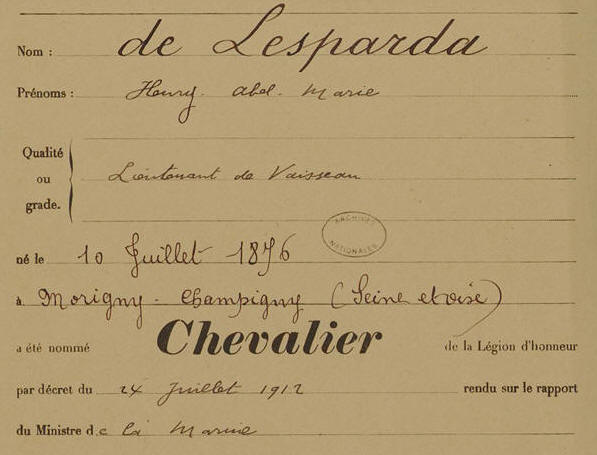 Nom : de Lesparda
Prénoms : Henry. Abel. Marie
Qualité
ou
grade.
Lieutenant de Vaisseau
ARCHIVES
NATIONALES
né le 10 Juillet 1876
à Morigny - Champigny (Seine et oise)
a été nommé Chevalier de la Légion d'honneur
par décret du 24 Juillet 1912 rendu sur le rapport
du Ministre de la Marine